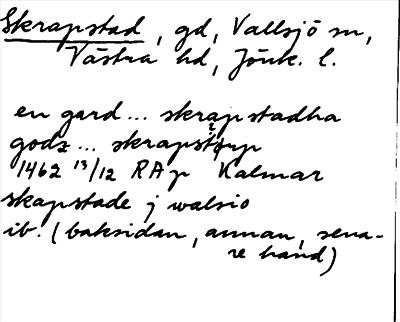 Skrapstad, gd, Vallsjö sn,
Västra hd, Jönk. l.
en gard... skrapstadha
godz... skrapst
1462 13/12 RAp Kalmar
skapstade j walsio
ib. (baksidan, annan, sena-
re hand)